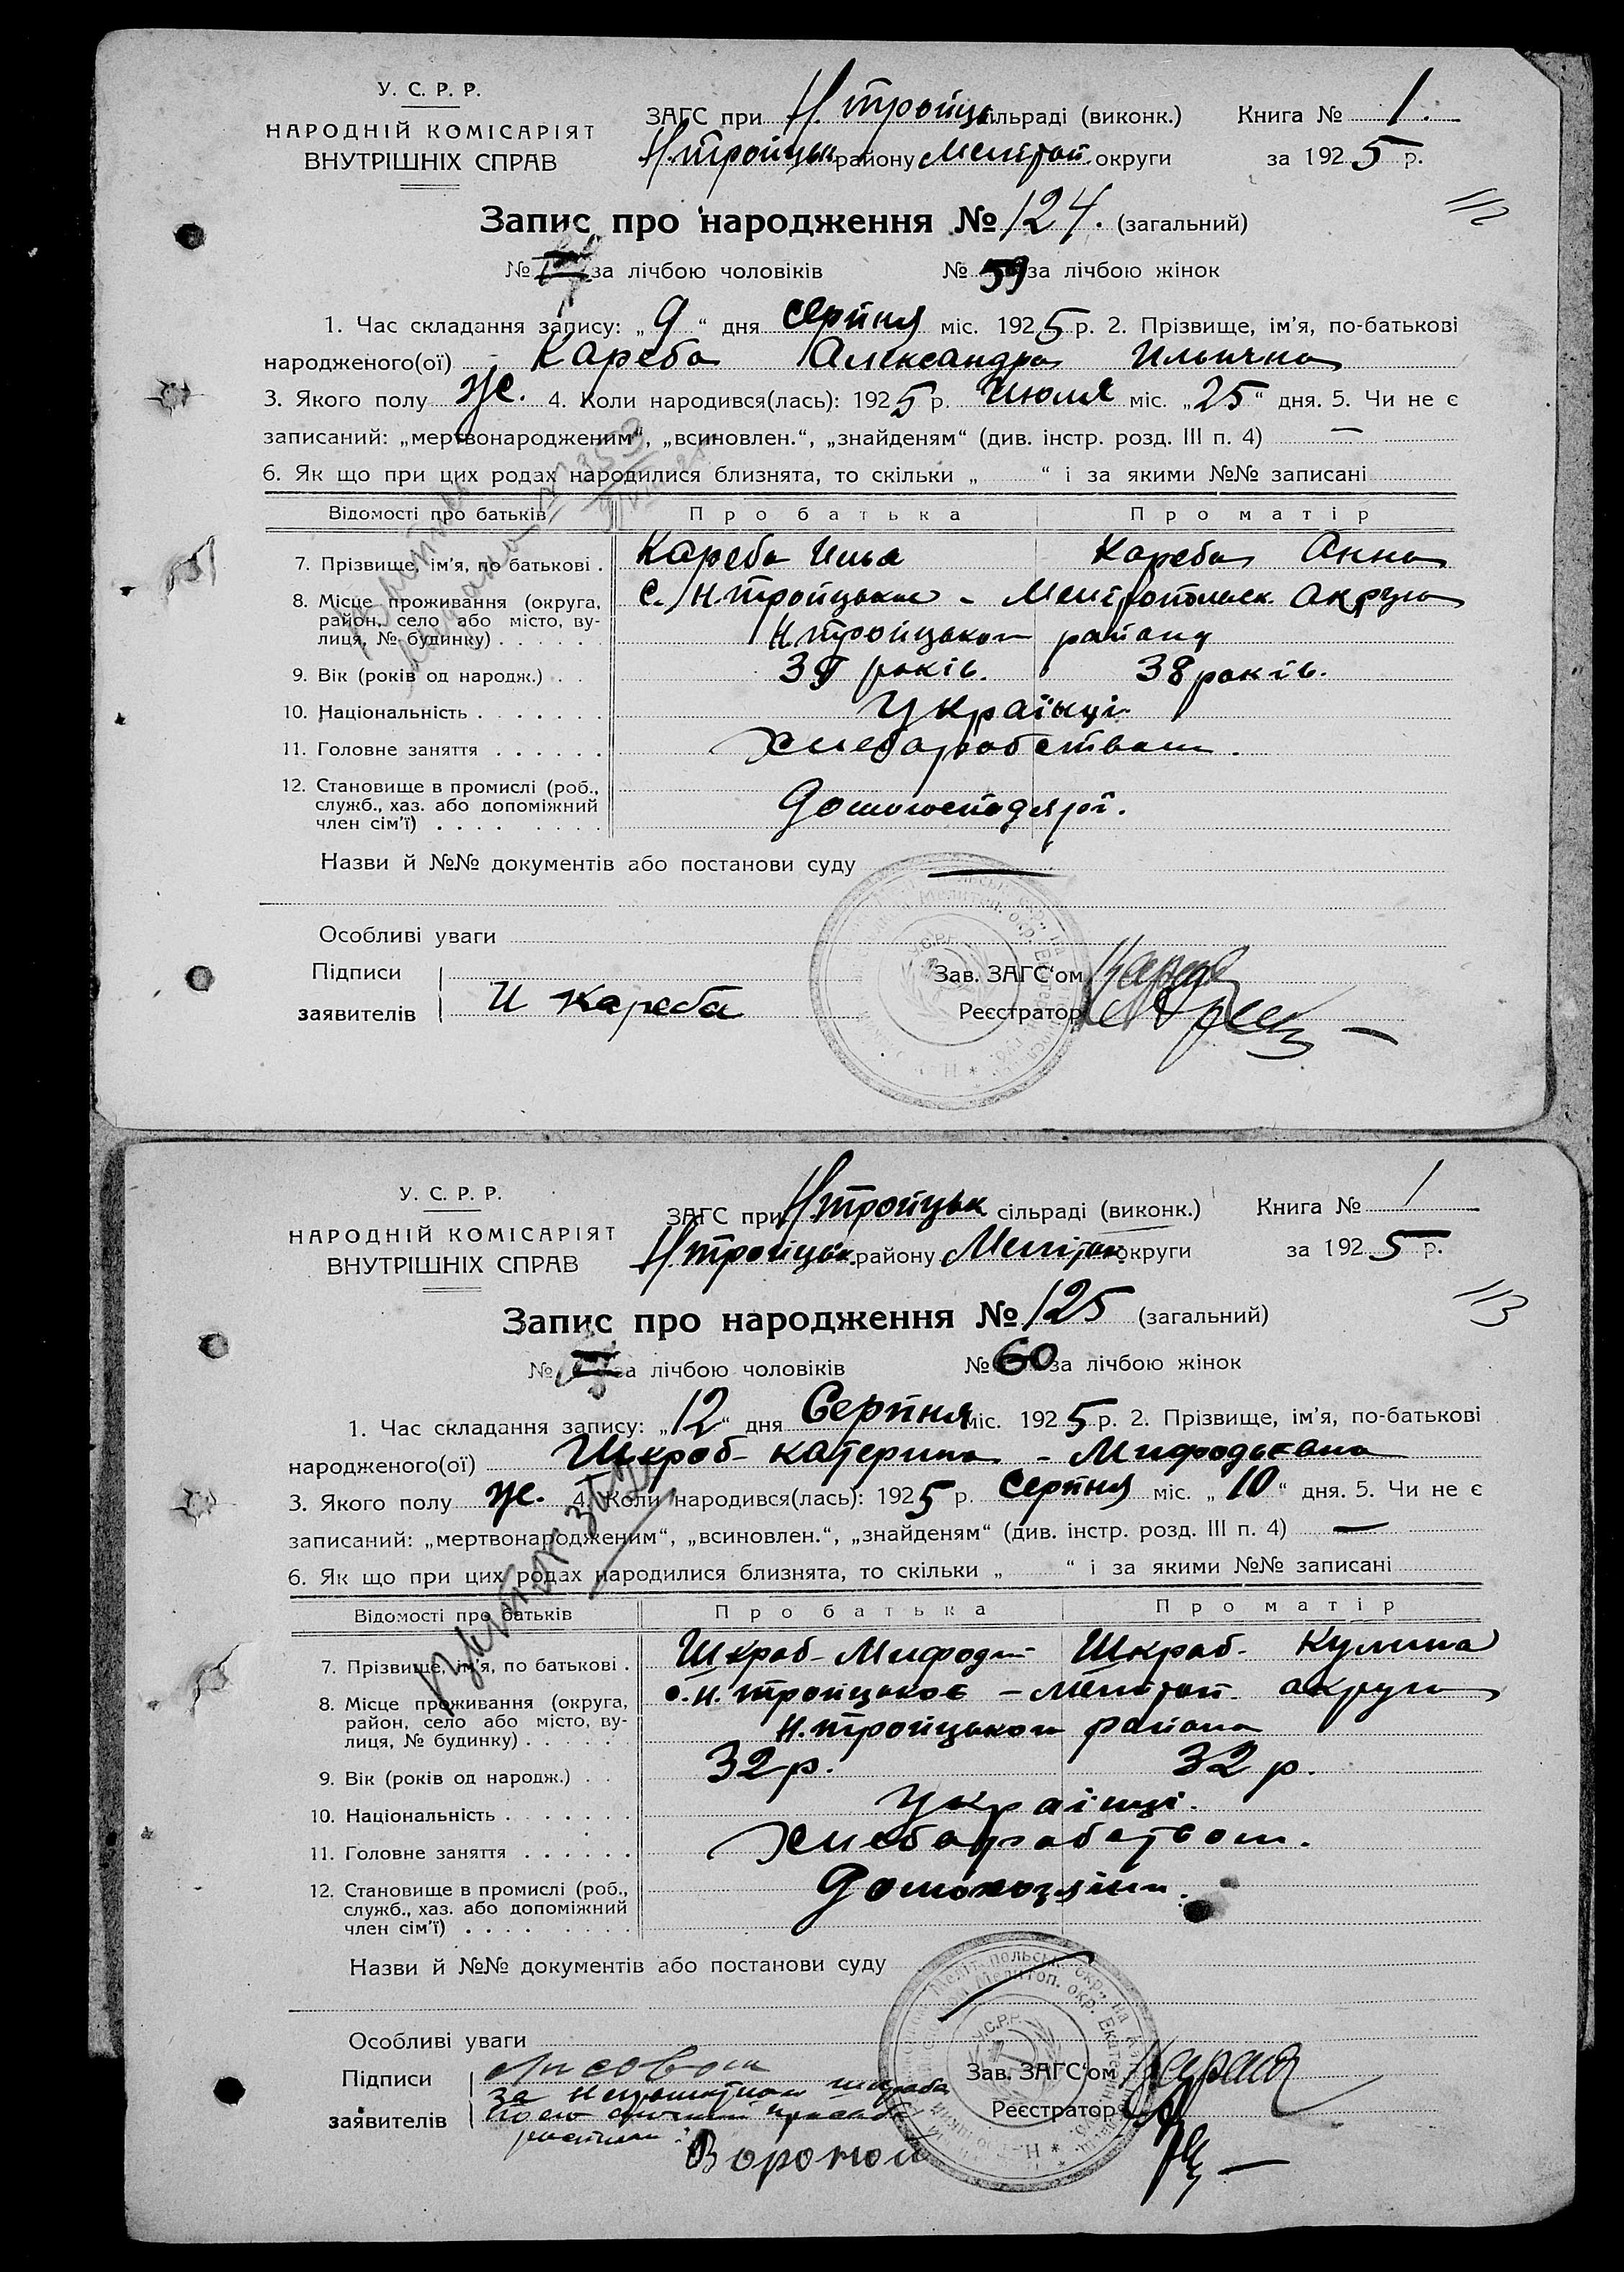 У. С. Р. Р.
НАРОДНІЙ КОМІСАРІЯТ
ВНУТРІШНІХ СПРАВ
ЗАГС при Н. Тройцьк сільраді (виконк.) Книга № 1.
Н. Тройцьк району Мелітоп. округи за 1925 р.
112
Запис про народження № 124. (загальний)
№ за лічбою чоловіків № 59 за лічбою жінок
1. Час складання запису: „9“ дня Серпня міс. 1925 р. 2. Прізвище, ім’я, по-батькові
народженого(ої) Кареба Александра Ильична
3. Якого полу же. 4. Коли народився(лась): 1925 р. Июля міс. „25“ дня. 5. Чи не є
записаний: „мертвонародженим“, „всиновлен.“, „знайденям“ (див. інстр. розд. III п. 4) —
6. Як що при цих родах народилися близнята, то скільки „ “ і за якими №№ записані
Відомості про батьків Про батька Про матір
7. Прізвище, ім’я, по батькові . Кареба Илья Кареба Анна
8. Місце проживання (округа, район, село або місто, вулиця, № будинку) С. Н. Тройцькое - Мелітопольск. Округа
Н. Тройцького району
9. Вік (років од народж.) . . років. 38 років.
10. Національність Українці
11. Головне заняття Хлеборобством.
12. Становище в промислі (роб., служб., хаз. або допоміжний член сім’ї) Домогосподярі.
Назви й №№ документів або постанови суду —
Особливі уваги
Підписи заявителів И Кареба
Зав. ЗАГС‘ом
Реєстратор
У. С. Р. Р.
НАРОДНІЙ КОМІСАРІЯТ
ВНУТРІШНІХ СПРАВ
ЗАГС при Н. Тройцьк сільраді (виконк.) Книга № 1
Н. Тройцьк. району Мелітоп. округи за 1925 р.
113
Запис про народження № 125 (загальний)
№ за лічбою чоловіків № 60 за лічбою жінок
1. Час складання запису: „12“ дня Серпня міс. 1925 р. 2. Прізвище, ім’я, по-батькові
народженого(ої) Шкроб - Катерина - Мифодьевна
3. Якого полу же. 4. Коли народився(лась): 1925 р. Серпня міс. „10“ дня. 5. Чи не є
записаний: „мертвонародженим“, „всиновлен.“, „знайденям“ (див. інстр. розд. III п. 4) —
6. Як що при цих родах народилися близнята, то скільки „ “ і за якими №№ записані
Відомості про батьків Про батька Про матір
7. Прізвище, ім’я, по батькові . Шкроб - Мифодій Шкроб - Кулина
8. Місце проживання (округа, район, село або місто, вулиця, № будинку) с. Н. Тройцькоє - Мелітоп. округи
Н. Тройцького района
9. Вік (років од народж.) . . 32 р. 32 р.
10. Національність Українці.
11. Головне заняття Хлеборобством.
12. Становище в промислі (роб., служб., хаз. або допоміжний член сім’ї) Домохозяіни.
Назви й №№ документів або постанови суду
Особливі уваги
Підписи заявителів
за неграмотного Шкроба
по его личной просьбе
росписал:
Вороной
Зав. ЗАГС‘ом
Реєстратор